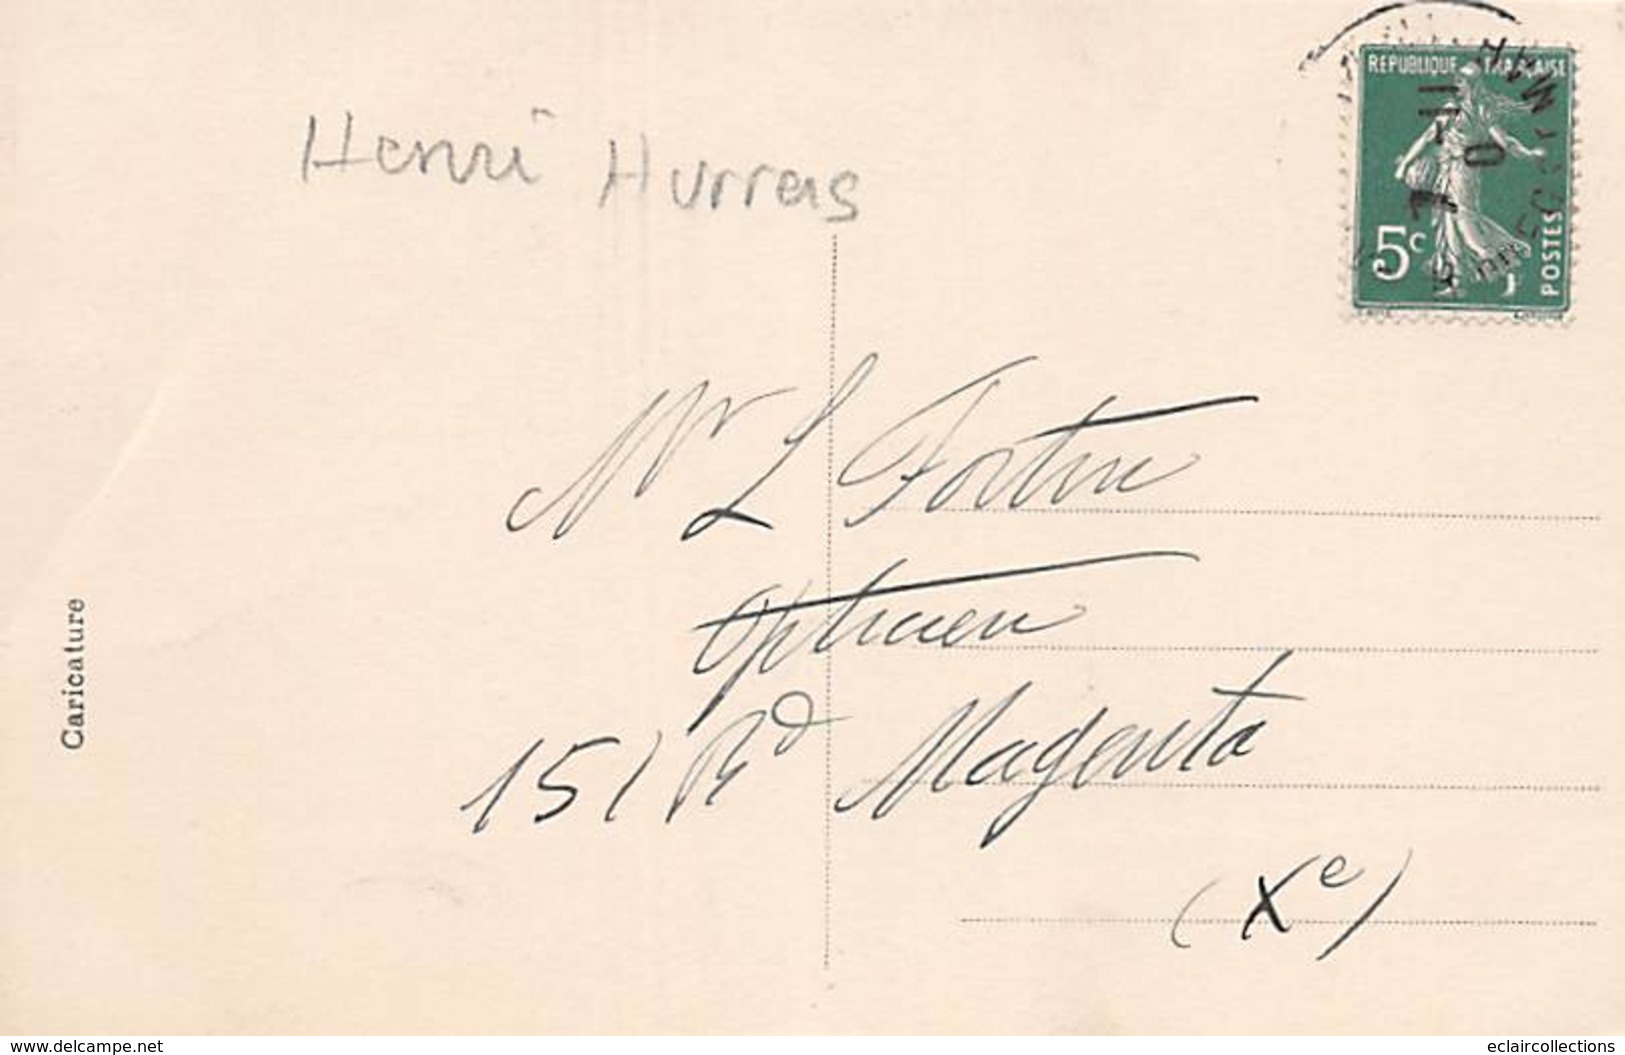 Henri Hurreas
REPUBLIQUE FRANCAISE
5c
POSTES
Mr L Fortin
Opticien
151 Bd Magenta
(Xe)
Caricature
www.delcampe.net
eclaircollections